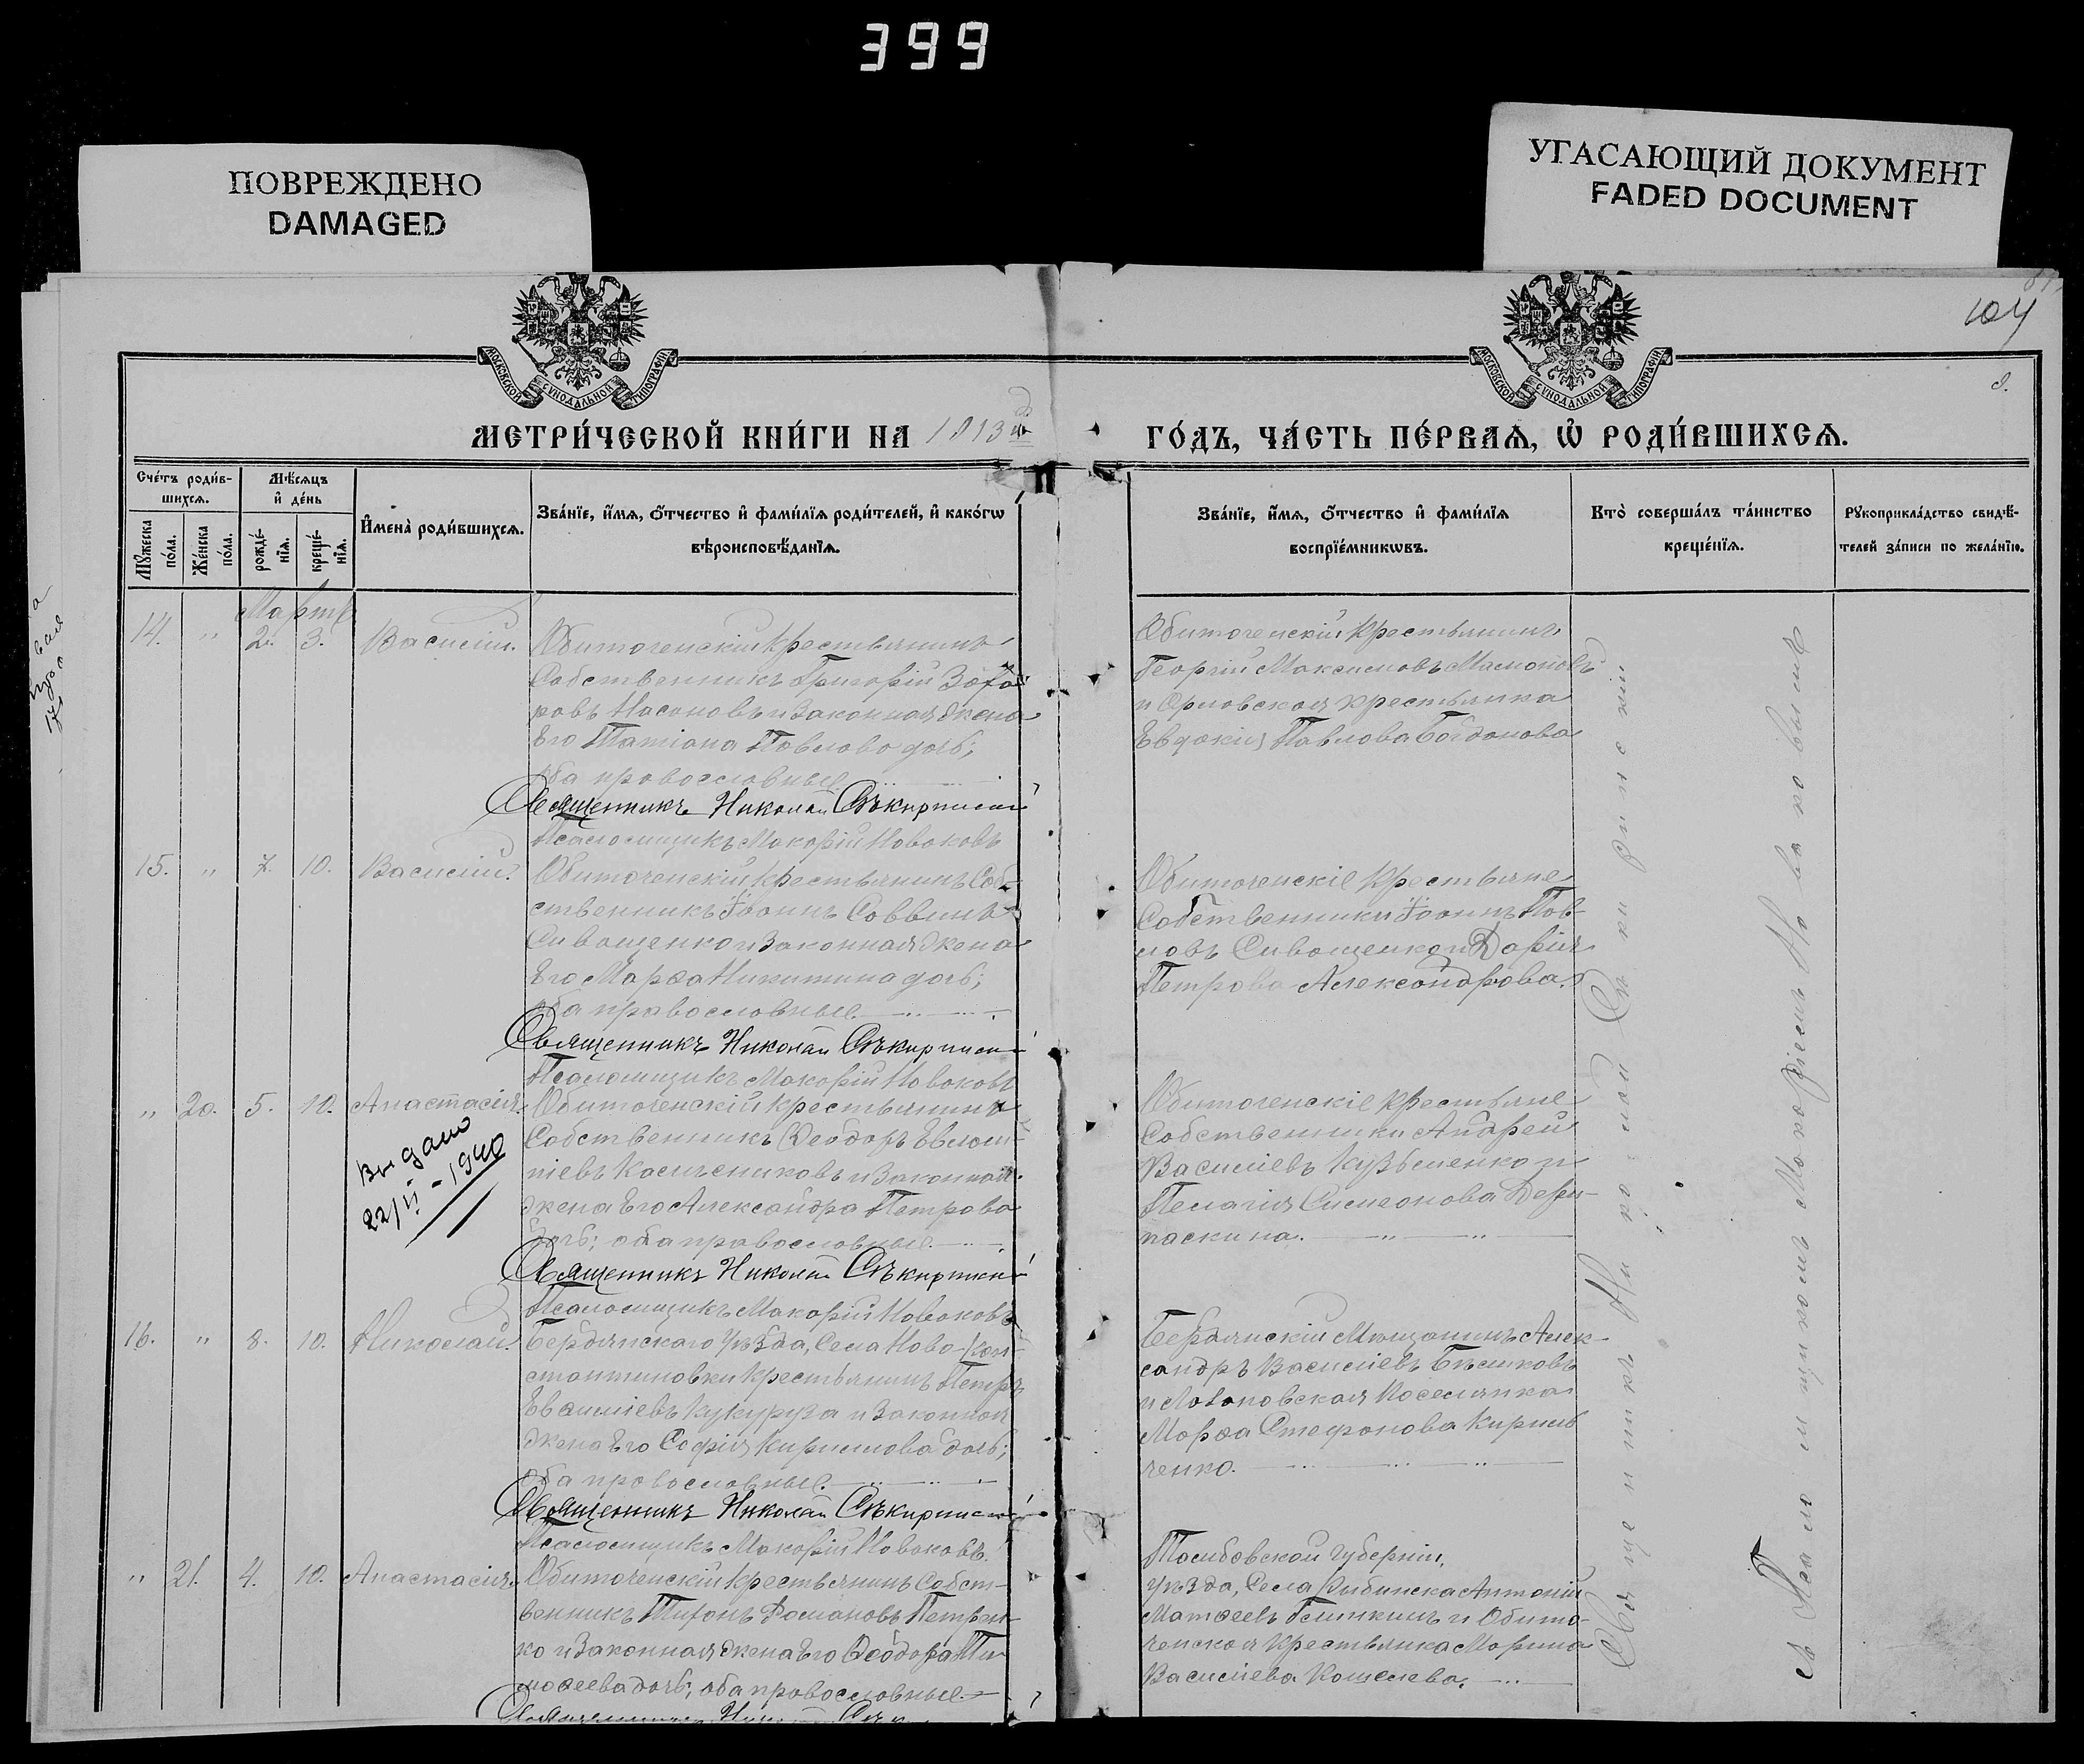 399
ПОВРЕЖДЕНО
DAMAGED
УГАСАЮЩИЙ ДОКУМЕНТ
FADED DOCUMENT
104
МОСКОВСКОЙ СѴНОДАЛЬНОЙ ТИПОГРАФІИ
МОСКОВСКОЙ СѴНОДАЛЬНОЙ ТИПОГРАФІИ
МЕТРИ́ЧЕСКОЙ КНИ́ГИ НА 1913 й
ГО́ДЪ, ЧА́СТЬ ПЕ́РВАѦ, Ѡ҆ РОДИ́ВШИХСѦ.
Сче́тъ роди́в-
шихсѧ.
Мꙋ́жеска по́ла.
Же́нска по́ла.
Мѣ́сѧцъ
и҆ де́нь
рожде́-
нїѧ.
креще́-
нїѧ.
И҆мена̀ роди́вшихсѧ.
Зва́нїе, и҆́мѧ, ѻ҆́тчество и҆ фами́лїѧ роди́телей, и҆ како́гѡ
вѣроисповѣ́данїѧ.
Зва́нїе, и҆́мѧ, ѻ҆́тчество и҆ фами́лїѧ
воспрїе́мникѡвъ.
Кто̀ соверша́лъ та́инство
креще́нїѧ.
Рꙋкоприкла́дство свидѣ́-
телей за́писи по жела́нїю.
Мартъ
14. " 2. 3. Василій.
Обиточенскій крестьянинъ
Собственникъ Григорій Заха-
ровъ Насоновъ и законная жена
Его Татіана Павлова дочь;
оба православные
Священникъ Николай Сѣкиринскій
Псаломщикъ Макарій Новаковъ
Обиточенскій крестьянинъ
Георгій Максимовъ Мамоновъ
и Орловская крестьянка
Евдокія Павлова Богданова
15. " 7. 10. Василій.
Обиточенскій крестьянинъ Соб-
ственникъ Іоаннъ Саввинъ
Сиващенко и законная жена
Его Марѳа Никитина дочь;
оба православные.
Священникъ Николай Сѣкиринскій
Псаломщикъ Макарій Новаковъ
Обиточенскіе крестьяне
Собственники Іоаннъ Пав-
ловъ Сиващенко и Дарія
Петрова Александрова.
" 20. 5. 10. Анастасія.
Выдано
22/II - 1940
Обиточенскій крестьянинъ
Собственникъ Ѳеодоръ Евлам-
піевъ Калмычковъ и законная
жена Его Александра Петрова
дочь; оба православные.
Священникъ Николай Сѣкиринскій
Псаломщикъ Макарій Новаковъ
Обиточенскіе крестьяне
Собственники Андрей
Василіевъ Кузьменко и
Пелагія Симеонова Дери-
паскина.
16. " 8. 10. Николай.
Бердянскаго уѣзда, Села Ново-Кон-
стантиновки крестьянинъ Петръ
Василіевъ Кукуруза и законная
жена Его Софія Кириллова дочь;
оба православные.
Священникъ Николай Сѣкиринскій
Псаломщикъ Макарій Новаковъ.
Бердянскій Мѣщанинъ Алек-
сандръ Василіевъ Бѣликовъ
и Лозановская поселянка
Марѳа Стефанова Кирил-
ченко.
" 21. 4. 10. Анастасія.
Обиточенскій крестьянинъ Собст-
венникъ Тихонъ Романовъ Петрен-
ко и законная жена Его Ѳеодора Ти-
моѳеева дочь; оба православные.
Священникъ Николай Сѣк
Тамбовской губерніи,
уѣзда, Села Рыбинска Антоній
Матѳеевъ Гелинкинъ и Обито-
ченская крестьянка Марина
Василіева Кошелева.
Священникъ Николай Сѣкиринскій
съ Псаломщикомъ Макаріемъ Новаковымъ